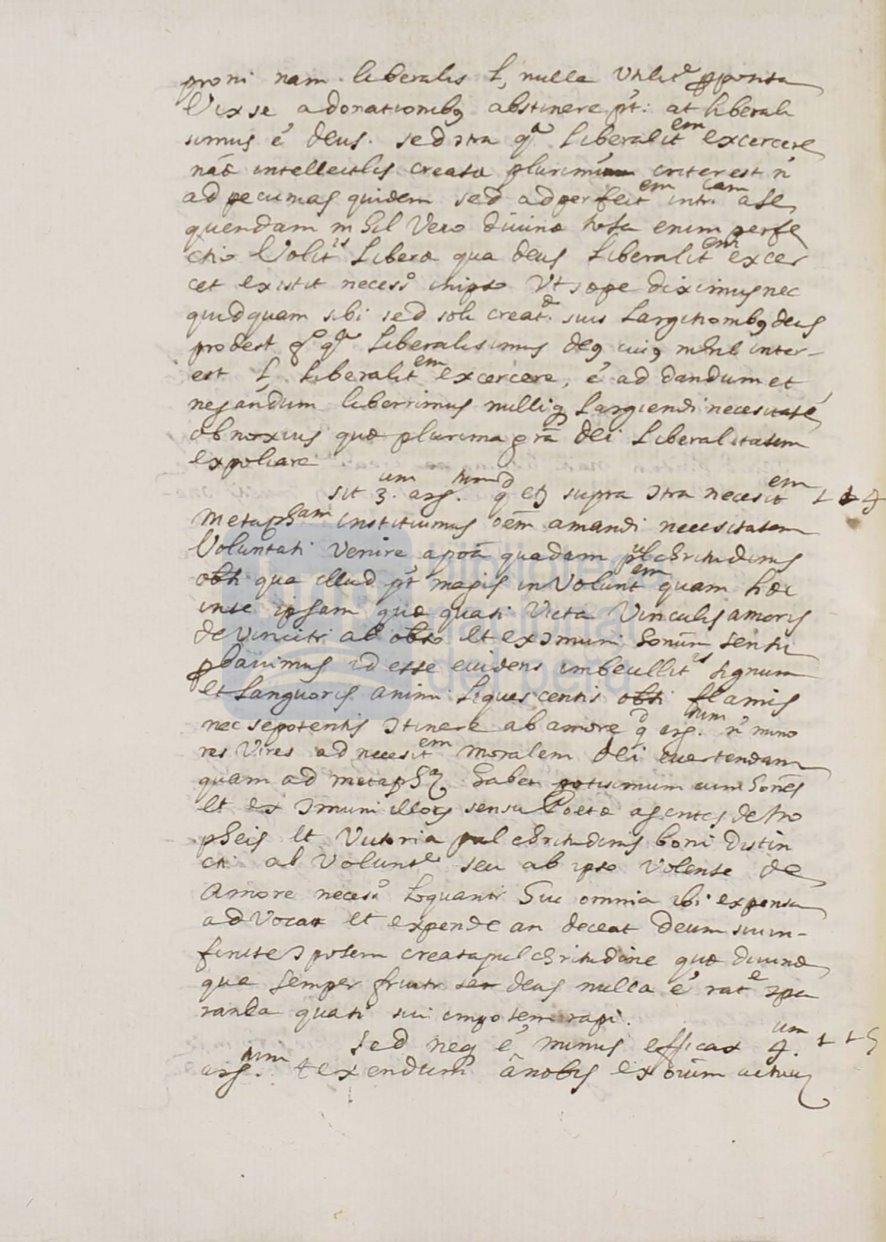 proni nam liberalis l, nulla Utilite pposita
Vix se adonationibq abstinere pt: at liberali
simus é Deus. sed Itra qa Liberalitem excercere
náe intellectlis creatæ plurimum interest ń
ad pecunias quidem sed ad perfectem intr. cam ase
quendam nhil Vero divinæ tota enim perfe
ctio Volitis Liberæ qua deus Liberalitem excer
cet existit necess inipso Ut sæpe diximus nec
quidquam sibi sed soli creatæ suis Largitionibq deus
prodest qo qa Liberalisimus deq cuiq nihil inter-
est l. Liberalitem excercere, é ad dandum et
negandum liberrimus nulliq Largiendi necesitaté
obnoxius quæ plurima gra dei Liberalitatem
expoliare
sit 3.um arg.tum qd et supra Itra necesitem 114
Metaphsam instituimus oém amandi necesitatem
Voluntati Venire apotá quadam pulchritudinis
obti qua illud pt magis in Voluntem quam hæc
inse ipsam quæ quasi Victa Vinculis amoris
de Vinciti ab obto et ex Imuni honum sensu
pbavimus id esse evidens imbecillitis signum
et Languoris animi Liquescentis obti flamis
nec sepotentis Itinere ab amore qd arg.tum ń mino
res Vires ad necesitem moralem dei evertendam
quam ad metaphsa habet potisimum cum hones
et ex Imuni illors sensu Poetæ agentes de tro
pheis et Victoria pulchritudinis boni distin
cti ab Volunte seu ab ipso Volente de
Amore necess Loquantr huc omnia ibi expensa
ad Vocat et expende an deceat Deum suiin-
finite Ipotem creata pulchritudine quæ divina
que semper fruitr ser deus nulla é rate Ipa
randa quasi sui impotem rapi.
sed neq é minus efficax 4.um 115
arg.tum texendum ánobis ex oium actuu